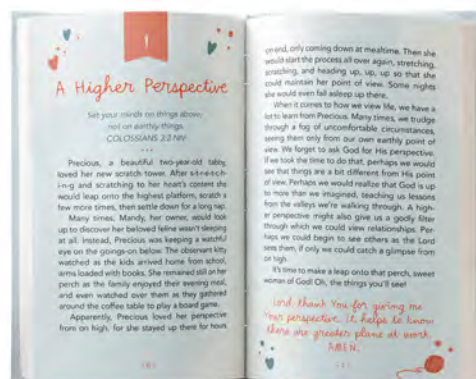 1
A Higher Perspective
Set your minds on things above,
not on earthly things.
COLOSSIANS 3:2 NIV
Precious, a beautiful two-year-old tabby,
loved her new scratch tower. After s-t-r-e-t-c-h-
i-n-g and scratching to her heart's content she
would leap onto the highest platform, scratch a
few more times, then settle down for a long nap.
Many times, Mandy, her owner, would look
up to discover her beloved feline wasn't sleeping
at all. Instead, Precious was keeping a watchful
eye on the goings-on below. The observant kitty
watched as the kids arrived home from school,
arms loaded with books. She remained still on her
perch as the family enjoyed their evening meal,
and even watched over them as they gathered
around the coffee table to play a board game.
Apparently, Precious loved her perspective
from on high, for she stayed up there for hours
on end, only coming down at mealtime. Then she
would start the process all over again, stretching,
scratching, and heading up, up, up so that she
could maintain her point of view. Some nights
she would even fall asleep up there.
When it comes to how we view life, we have a
lot to learn from Precious. Many times, we trudge
through a fog of uncomfortable circumstances,
seeing them only from our own earthly point of
view. We forget to ask God for His perspective.
If we took the time to do that, perhaps we would
see that things are a bit different from His point
of view. Perhaps we would realize that God is up
to more than we imagined, teaching us lessons
from the valleys we're walking through. A high-
er perspective might also give us a godly filter
through which we could view relationships. Per-
haps we could begin to see others as the Lord
sees them, if only we could catch a glimpse from
on high.
It's time to make a leap onto that perch, sweet
woman of God! Oh, the things you'll see!
Lord, thank You for giving me
Your perspective. It helps to know
there are greater plans at work.
AMEN.